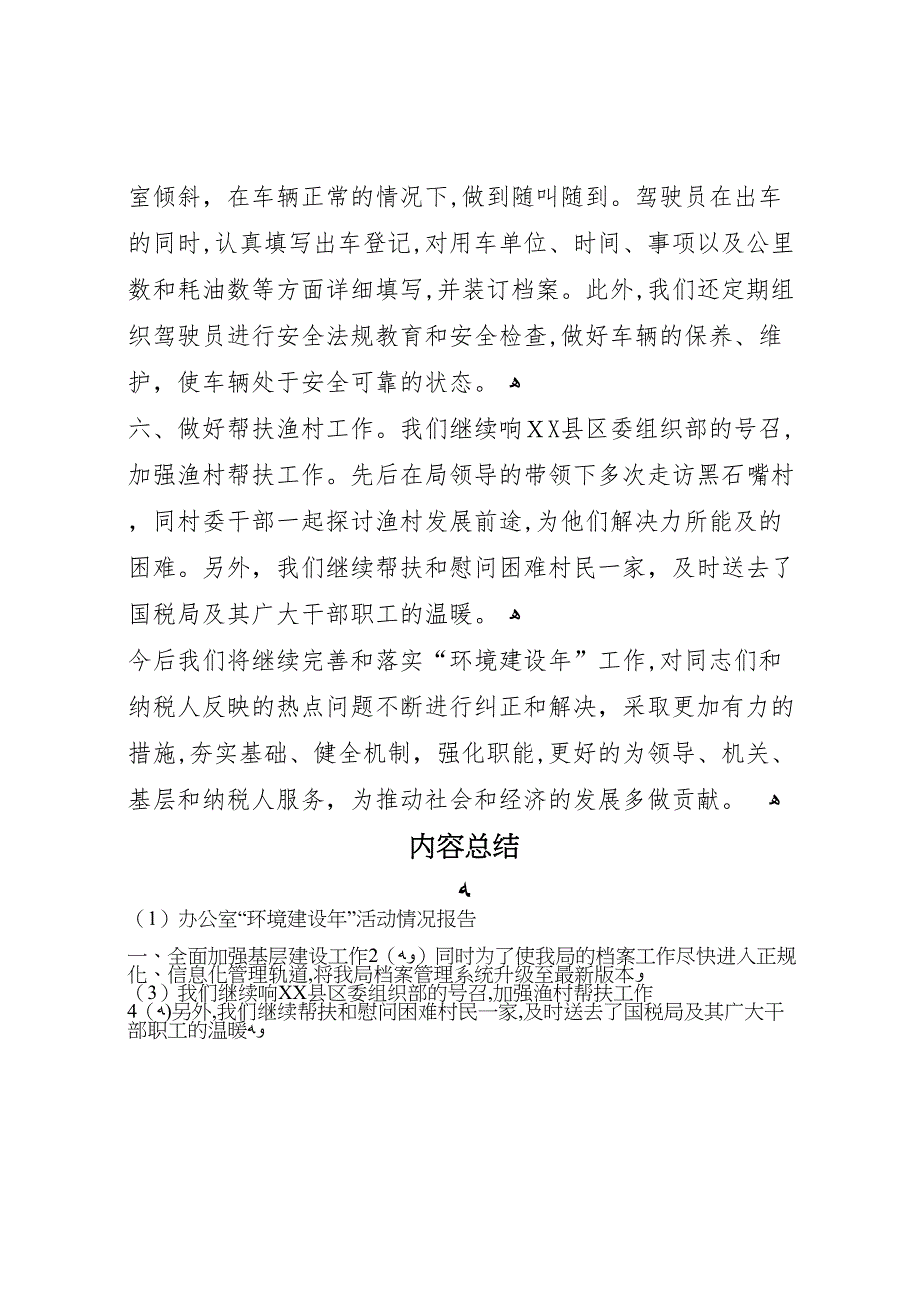 室倾斜，在车辆正常的情况下,做到随叫随到。驾驶员在出车
的同时,认真填写出车登记,对用车单位、时间、事项以及公里
数和耗油数等方面详细填写,并装订档案。此外,我们还定期组
织驾驶员进行安全法规教育和安全检查,做好车辆的保养、维
护，使车辆处于安全可靠的状态。 ﻫ
六、做好帮扶渔村工作。我们继续响XX县区委组织部的号召,
加强渔村帮扶工作。先后在局领导的带领下多次走访黑石嘴村
，同村委干部一起探讨渔村发展前途,为他们解决力所能及的
困难。另外，我们继续帮扶和慰问困难村民一家，及时送去了
国税局及其广大干部职工的温暖。 ﻫ
今后我们将继续完善和落实“环境建设年”工作,对同志们和
纳税人反映的热点问题不断进行纠正和解决，采取更加有力的
措施,夯实基础、健全机制，强化职能,更好的为领导、机关、
基层和纳税人服务，为推动社会和经济的发展多做贡献。 ﻫ
内容总结
ﻪ
（1）办公室“环境建设年”活动情况报告
一、全面加强基层建设工作2（ﻭﻪ）同时为了使我局的档案工作尽快进入正规
化、信息化管理轨道,将我局档案管理系统升级至最新版本ﻭ
（3）我们继续响XX县区委组织部的号召,加强渔村帮扶工作
4（ﻪ)另外,我们继续帮扶和慰问困难村民一家,及时送去了国税局及其广大干
部职工的温暖ﻭﻪ